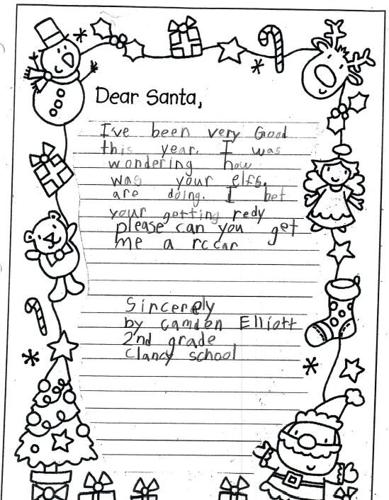 Dear Santa,
I've been very Good
this year. I was
wondering how
was your elfs.
are doing. I bet
your getting redy
please can you get
me a rccar
Sincerely
by Camden Elliott
2nd grade
Clancy school